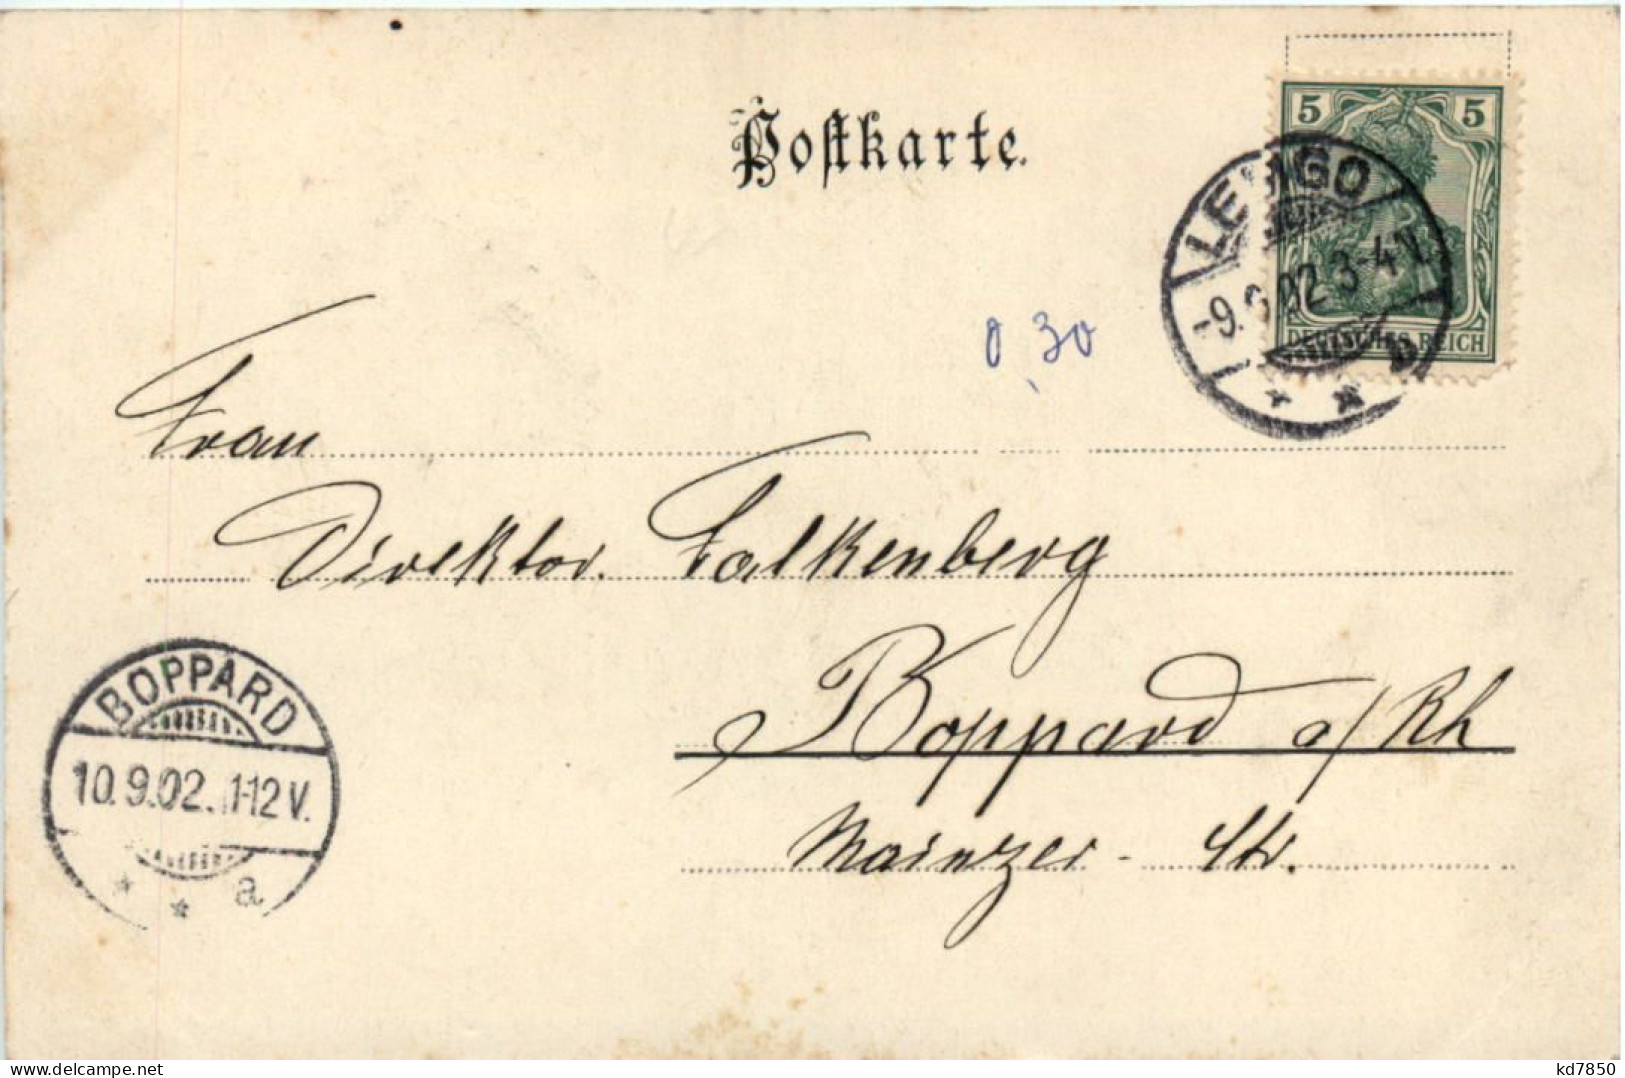 Postkarte.
5 5
LEMGO
-9. 9. 02 3-4 N.
DEUTSCHES REICH
0,30
Frau
Direktor. Falkenberg
Boppard a/Rh
Mainzer - Str.
BOPPARD
10.9.02. 11-12 V.
* * a
delcampe.net
kd7850